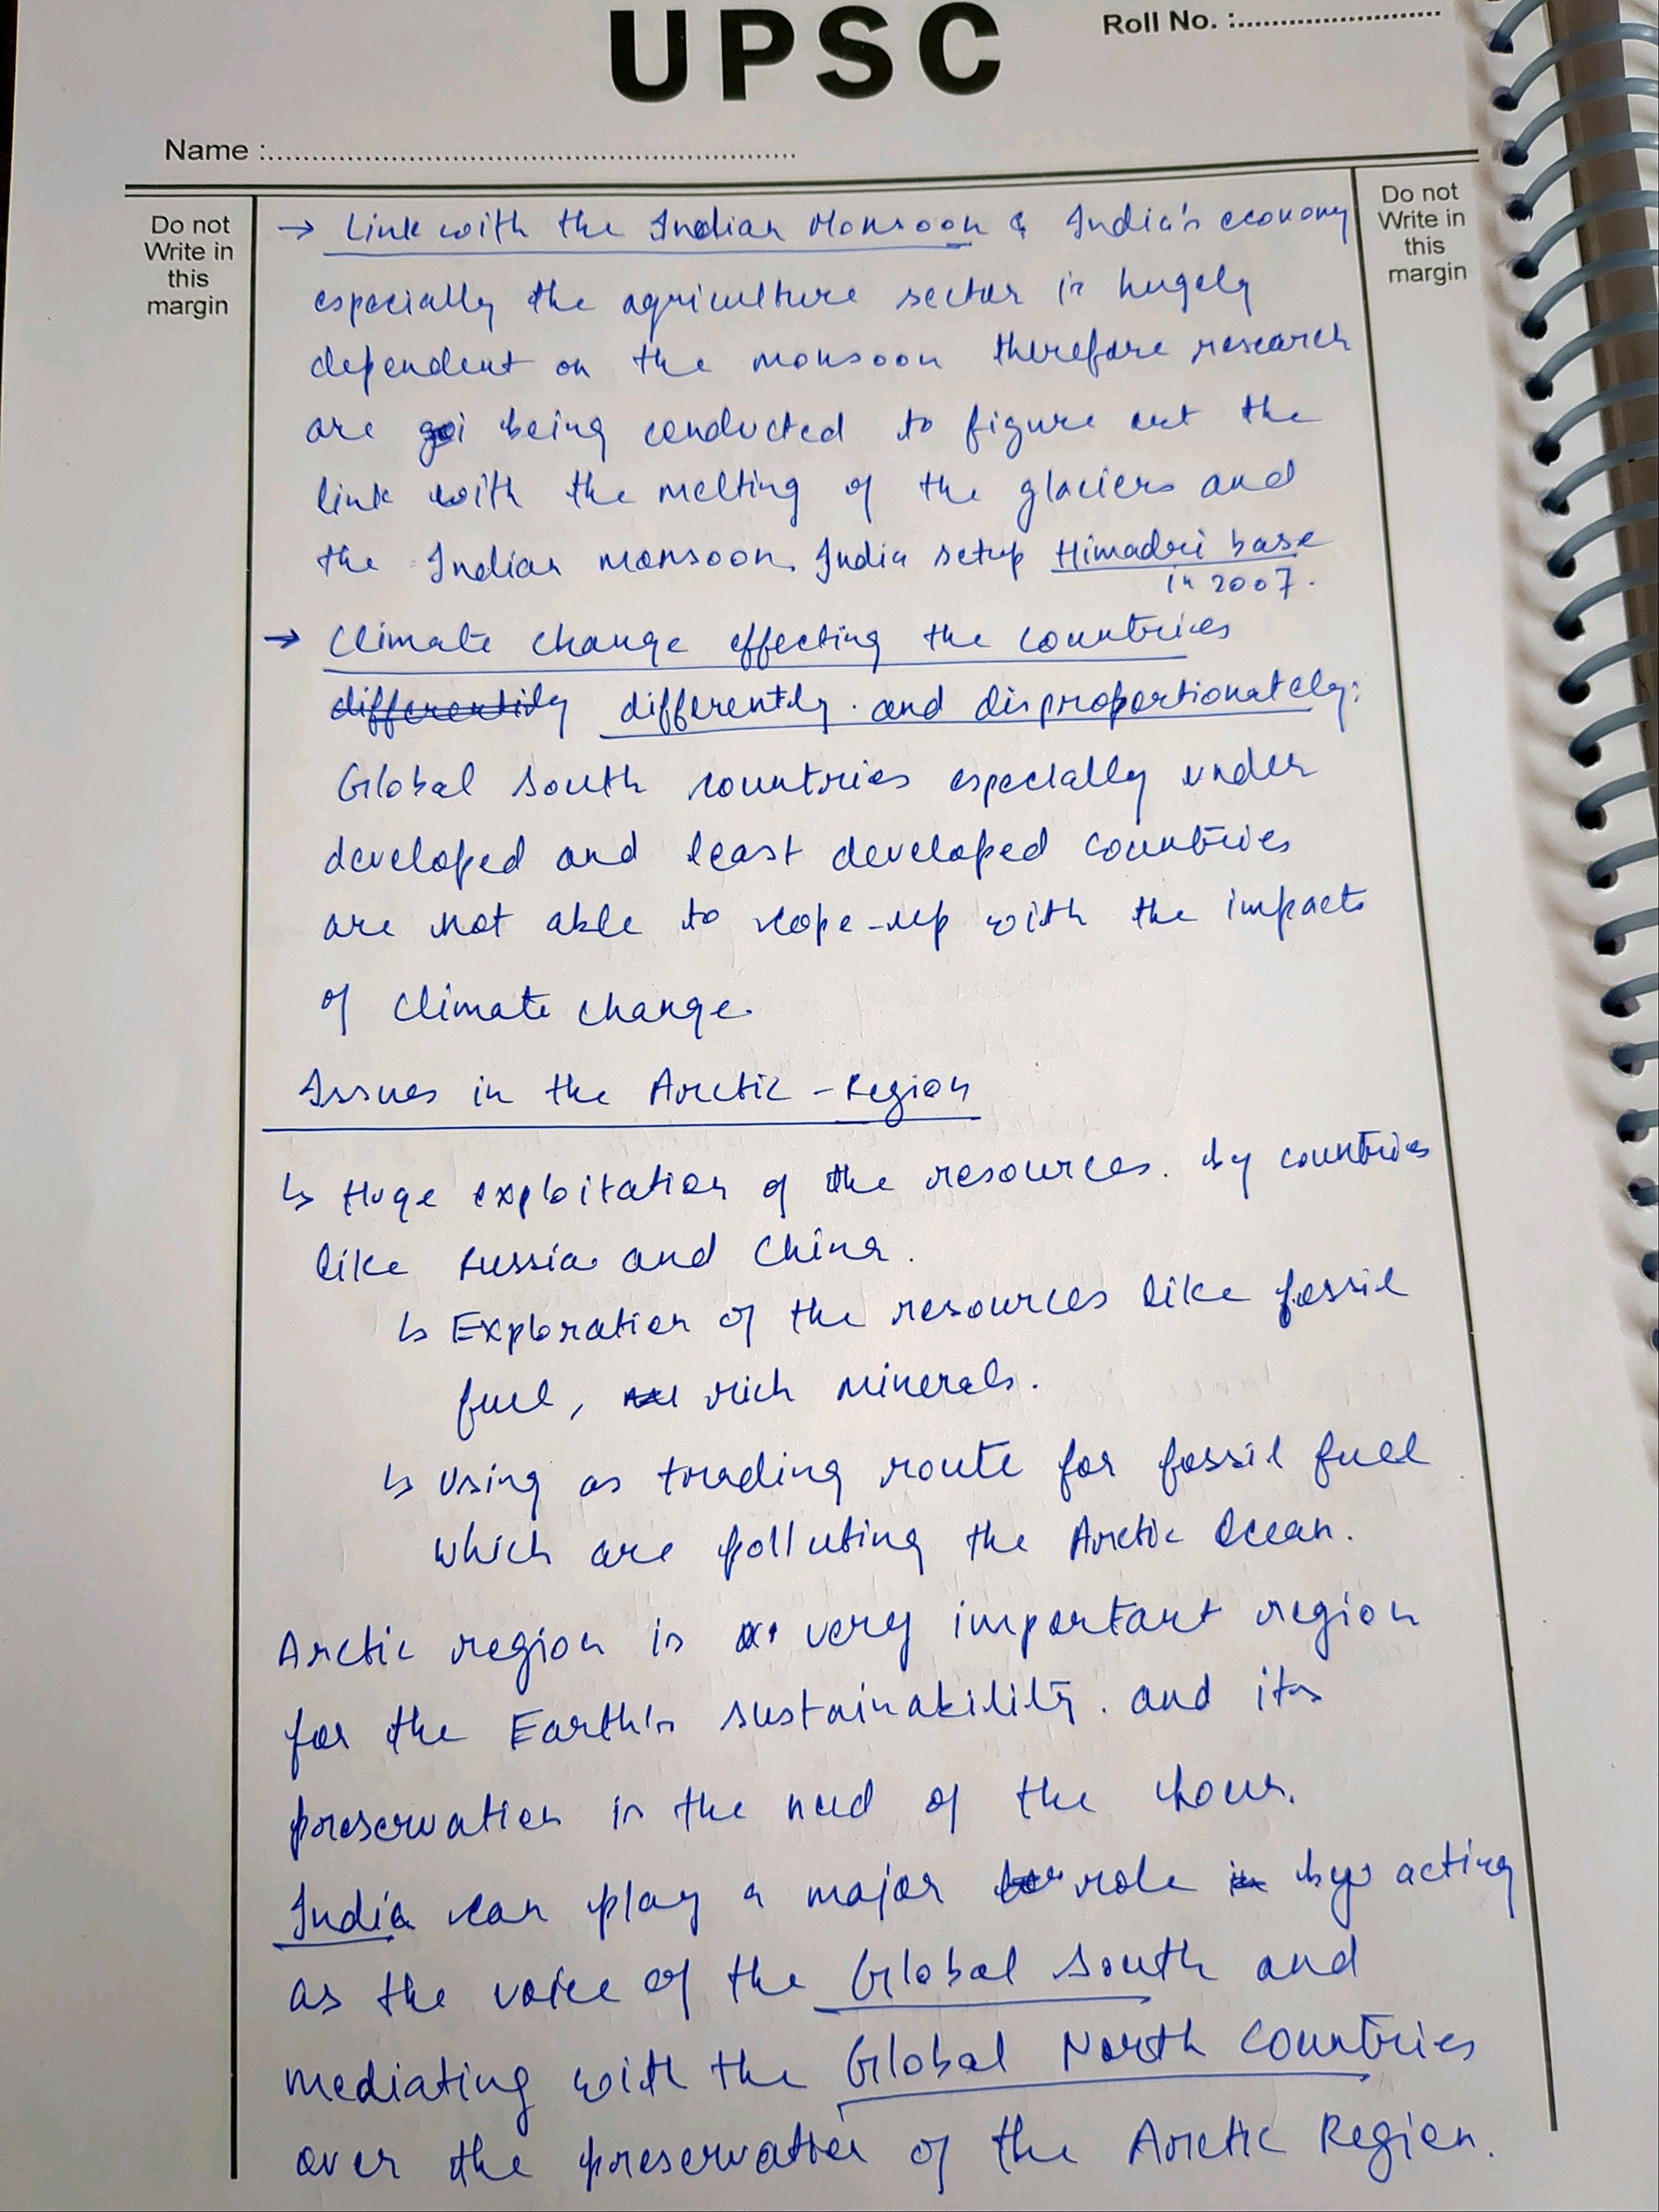 UPSC
Roll No. :........................
Name :............................................................
Do not
Write in
this
margin
Do not
Write in
this
margin
→ Link with the Indian Monsoon & India's economy
especially the agriculture sector is hugely
dependent on the monsoon therefore research
are being conducted to figure out the
link with the melting of the glaciers and
the Indian monsoon. India setup Himadri base
in 2007.
→ Climate change effecting the countries
differently and disproportionately:
Global South countries especially under
developed and least developed countries
are not able to cope-up with the impacts
of climate change.
Issues in the Arctic - Region
↳ Huge exploitation of the resources. by countries
like Russia and China.
↳ Exploration of the resources like fossil
fuel, rich minerals.
↳ Using as trading route for fossil fuel
which are polluting the Arctic Ocean.
Arctic region is a very important region
for the Earth's sustainability. and its
preservation is the need of the hour.
India can play a major role by acting
as the voice of the Global South and
mediating with the Global North Countries
over the preservation of the Arctic Region.